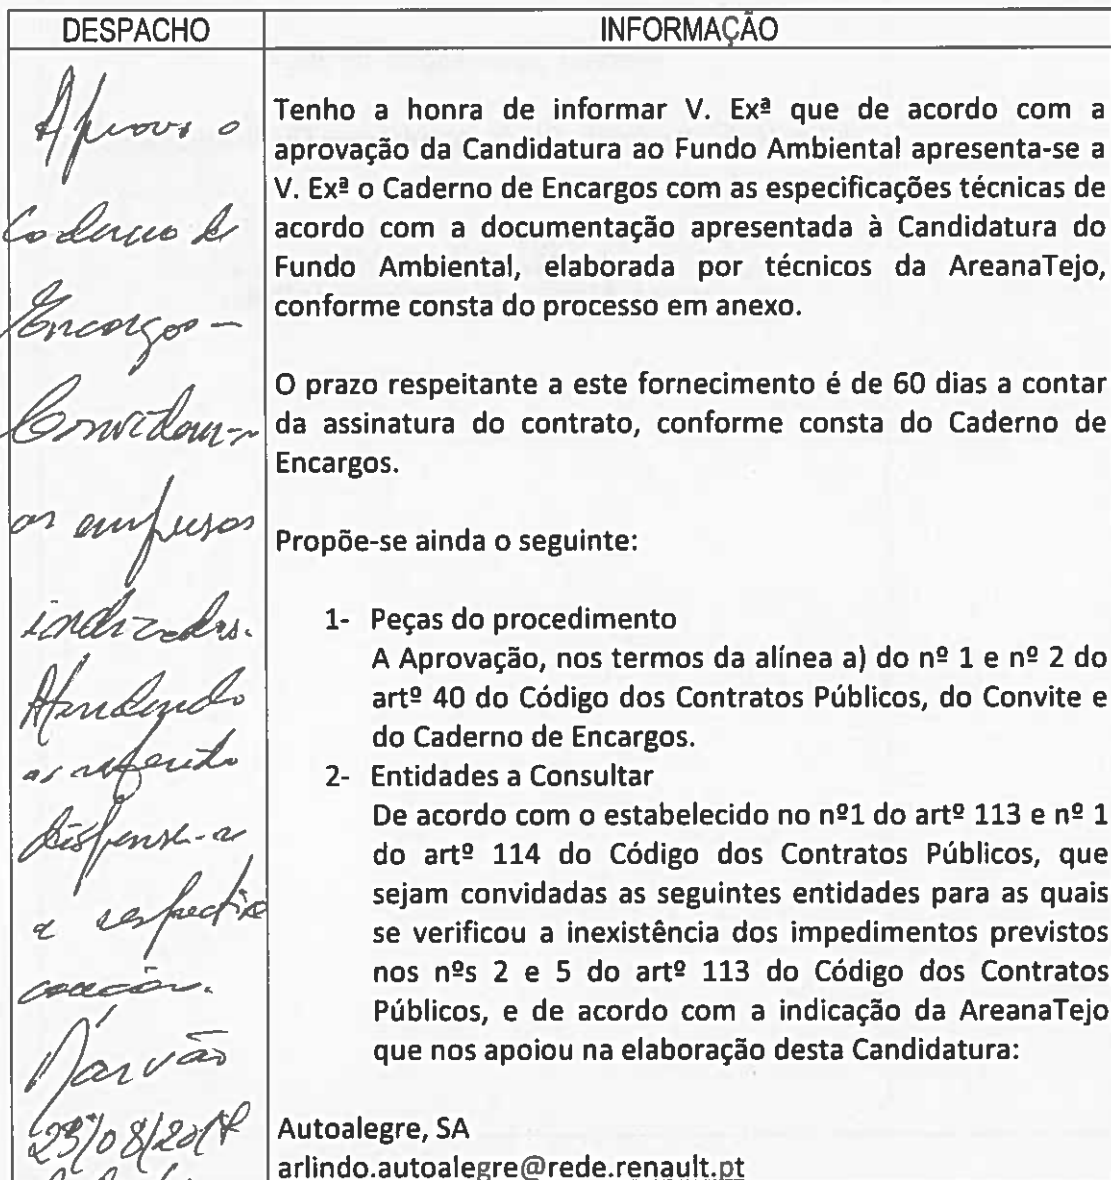 DESPACHO
INFORMAÇÃO
Aprovo o
Caderno de
Encargos –
Convidam-se
as empresas
indicadas.
Atendendo
ao referido
dispensa-se
a respectiva
caução.
Marvão
23/08/201
Tenho a honra de informar V. Exª que de acordo com a
aprovação da Candidatura ao Fundo Ambiental apresenta-se a
V. Exª o Caderno de Encargos com as especificações técnicas de
acordo com a documentação apresentada à Candidatura do
Fundo Ambiental, elaborada por técnicos da AreanaTejo,
conforme consta do processo em anexo.
O prazo respeitante a este fornecimento é de 60 dias a contar
da assinatura do contrato, conforme consta do Caderno de
Encargos.
Propõe-se ainda o seguinte:
1- Peças do procedimento
A Aprovação, nos termos da alínea a) do nº 1 e nº 2 do
artº 40 do Código dos Contratos Públicos, do Convite e
do Caderno de Encargos.
2- Entidades a Consultar
De acordo com o estabelecido no nº1 do artº 113 e nº 1
do artº 114 do Código dos Contratos Públicos, que
sejam convidadas as seguintes entidades para as quais
se verificou a inexistência dos impedimentos previstos
nos nºs 2 e 5 do artº 113 do Código dos Contratos
Públicos, e de acordo com a indicação da AreanaTejo
que nos apoiou na elaboração desta Candidatura:
Autoalegre, SA
arlindo.autoalegre@rede.renault.pt